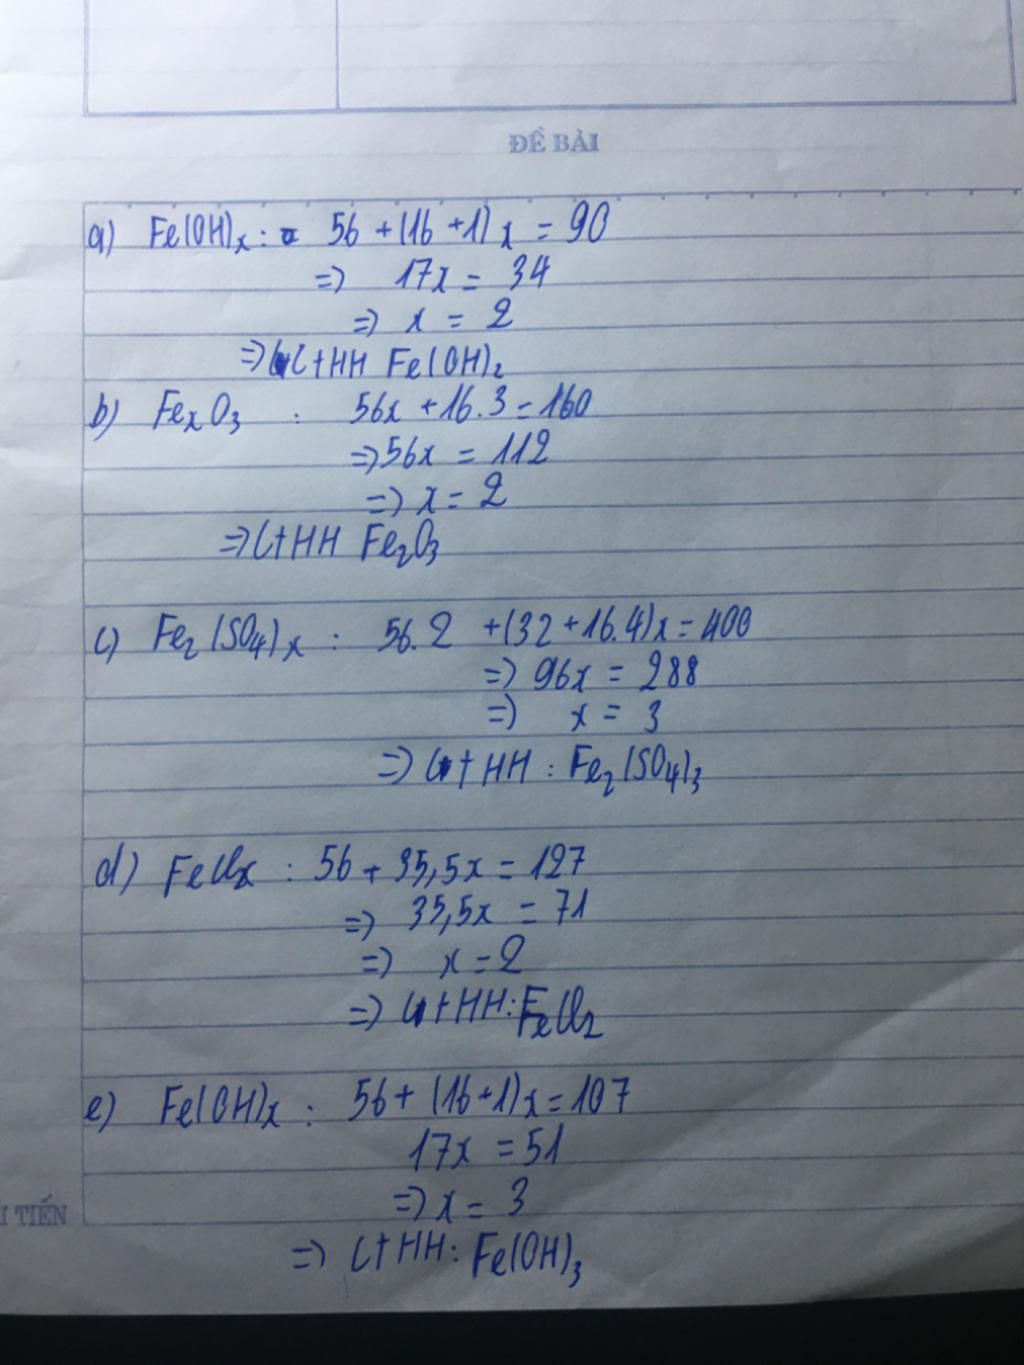 ĐỀ BÀI
a) Fe(OH)ₓ : 56 + (16 + 1) x = 90
=) 17x = 34
=) x = 2
=) CTHH Fe(OH)₂
b) FeₓO₃ : 56x + 16.3 = 160
=) 56x = 112
=) x = 2
=) CTHH Fe₂O₃
c) Fe₂(SO₄)ₓ : 56.2 + (32 + 16.4)x = 400
=) 96x = 288
=) x = 3
=) CTHH : Fe₂(SO₄)₃
d) FeClₓ : 56 + 35,5x = 127
=) 35,5x = 71
=) x = 2
=) CTHH : FeCl₂
e) Fe(OH)ₓ : 56 + (16 + 1)x = 107
17x = 51
=) x = 3
I TIẾN
=) CTHH : Fe(OH)₃